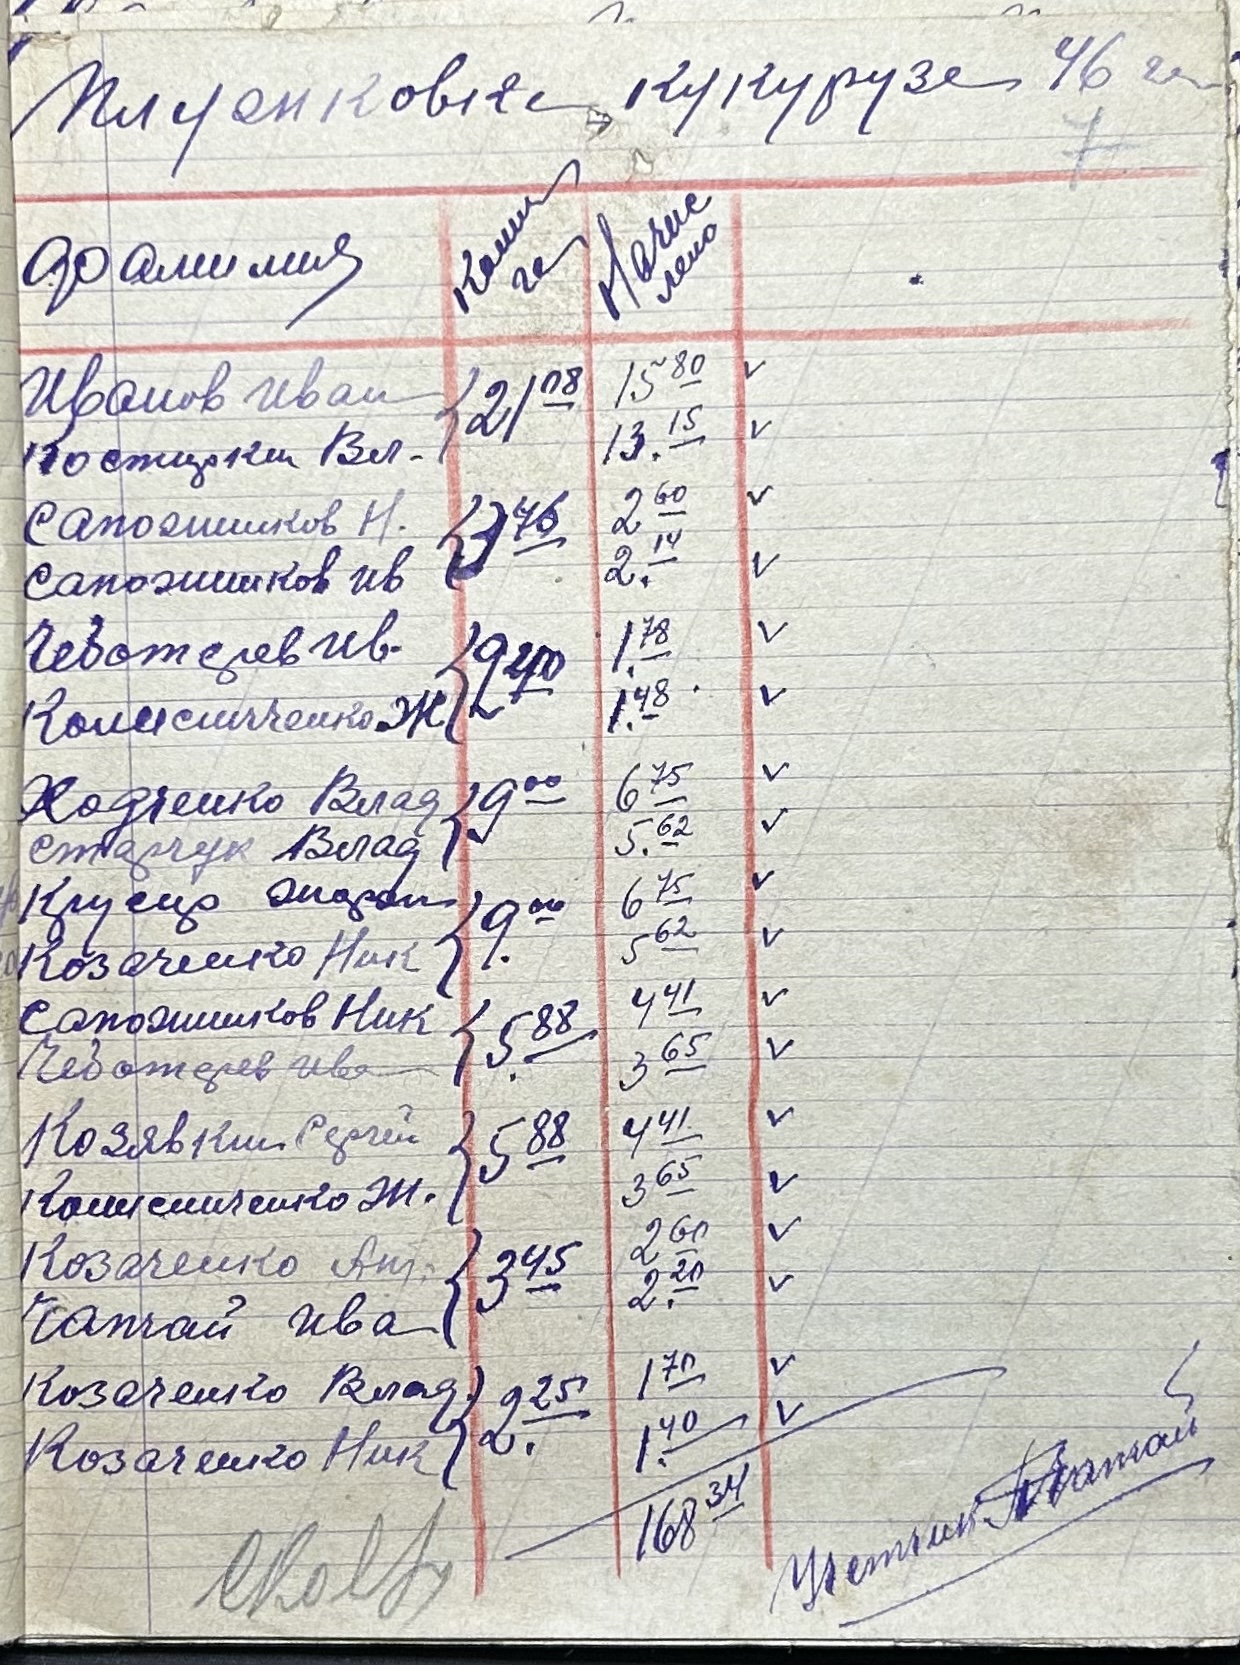 Плуянковка кукурузе 46 га
7
Фамилия Колич га Начис лено
Иванов Иван 21 08 15 80 v
Костюкин Вл. 13. 15 v
Сапожников Н. 3 76 2 60 v
Сапожников Ив 2. 14 v
Чеботарев Ив. 2 40 1. 78 v
Колисниченко Ж 1. 48 v
Ходченко Влад 9 00 6 75 v
Старчук Влад 5. 62 v
9. 00 6 75 v
Козаченко Ник 5 62 v
Сапожников Ник 5. 88 4 41 v
Чеботарев Ива 3 65 v
Козявкин Сергей 5 88 4 41 v
Колисниченко Ж. 3 65 v
Козаченко Ант. 3 45 2 60 v
Чапчай Ива 2. 20 v
Козаченко Влад 2. 25 1 70 v
Козаченко Ник 1. 40 v
168 34
Учетчик Чапчай